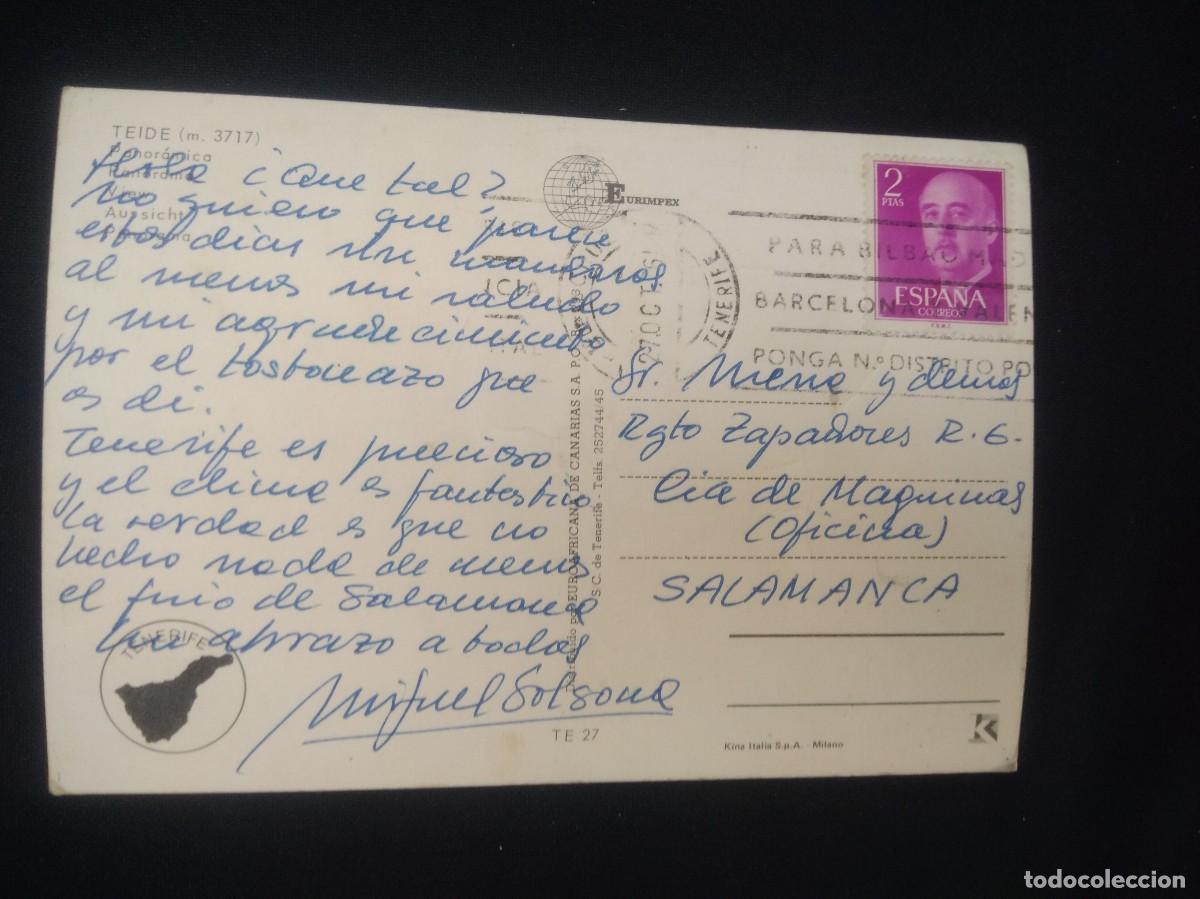 TEIDE (m. 3717)
Panorámica
Panorama
View
Aussicht
Hola ¿Que tal?
No quiero que pasen
estos dias sin mandaros
al menos mi saludo
y mi agradecimiento
por el tostonazo que
os di.
Tenerife es precioso
y el clima es fantastico
La verdad es que no
hecho nada de menos
el frio de Salamanca
Un abrazo a todos
Miguel Solsona
TENERIFE
TE 27
EURIMPEX
EUROAFRICANA DE CANARIAS S.A.
S/C. de Tenerife - Telfs. 252744/45
27.OCT.
TENERIFE
PARA BILBAO
BARCELONA
PONGA N.º DISTRITO PO
2
PTAS
ESPAÑA
CORREOS
Sr. Mena y demas
Rgto Zapadores R. 6.
Cia de Maquinas
(Oficina)
SALAMANCA
Kina Italia S.p.A. - Milano
K
todocoleccion